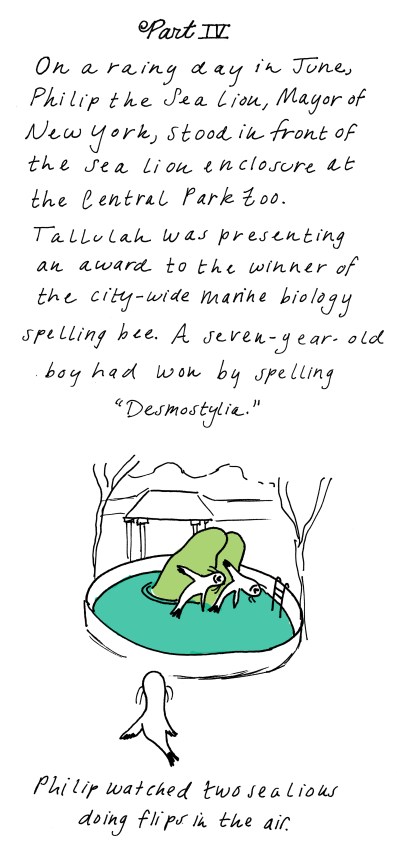 Part IV
On a rainy day in June,
Philip the Sea Lion, Mayor of
New York, stood in front of
the sea lion enclosure at
the Central Park Zoo.
Tallulah was presenting
an award to the winner of
the city-wide marine biology
spelling bee. A seven-year-old
boy had won by spelling
"Desmostylia."
Philip watched two sea lions
doing flips in the air.